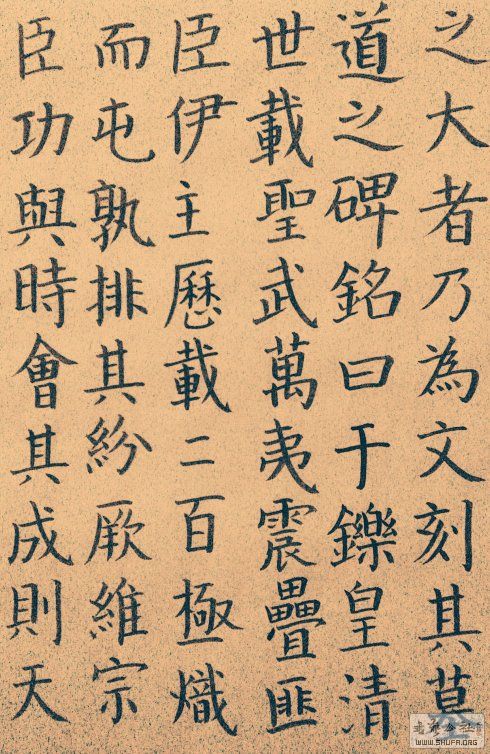 之大者乃為文刻其墓
道之碑銘曰于鑠皇清
世載聖武萬夷震疊匪
臣伊主歷載二百極熾
而屯孰排其紛厥維宗
臣功與時會其成則天
WWW.SHUFA.ORG